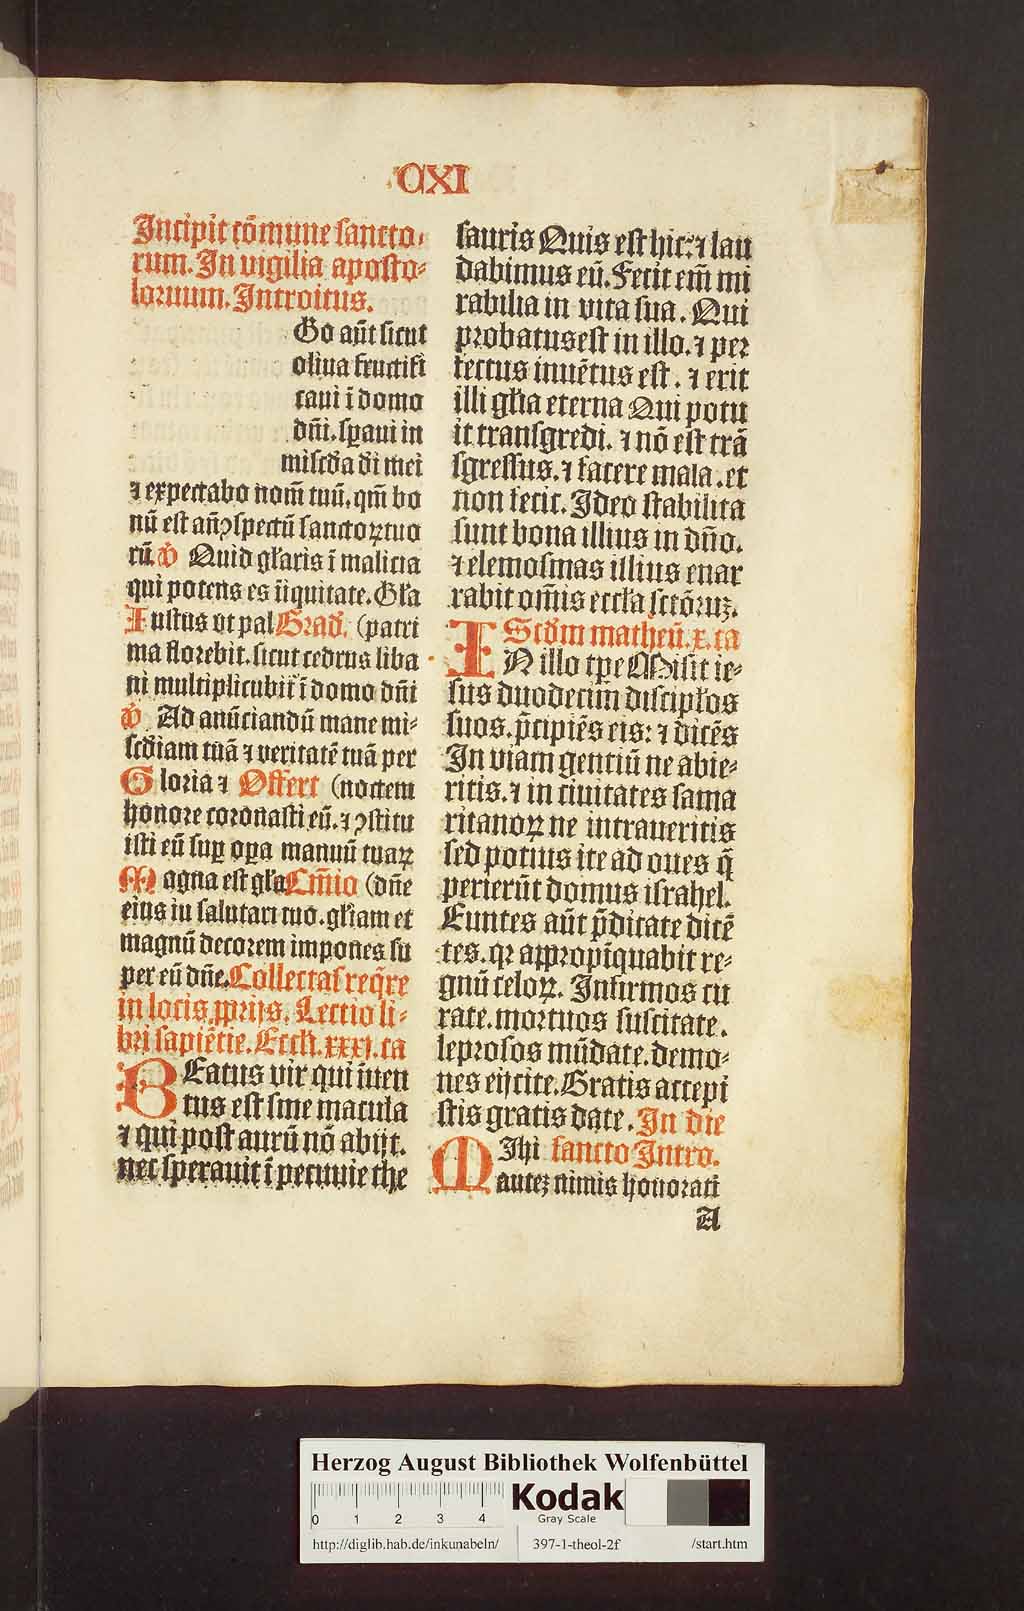 CXI
Incipit cōmune sancto⸗
rum. In vigilia aposto⸗
loruum. Introitus.
Go aūt sicut
oliua fructifi
caui ī domo
dn̄i. sꝑaui in
misc̄dia di mei
⁊ expectabo nom̄ tuū. qm̄ bo
nū est an̄ ꝯspectū sanctoꝝ tuo
rū. v̄ Quid gl̄aris ī malicia
qui potens es īiquitate. Gl̄a
Iustus vt pal Grad̄. (patri
ma florebit. sicut cedrus liba
ni multiplicabit᷑ ī domo dn̄i
v̄ Ad anūciandū mane mi⸗
sc̄diam tuā ⁊ veritatē tuā per
Gloria ⁊ Offert (noctem
honore coronasti eū. ⁊ ꝯstitu
isti eū suꝑ oꝑa manuū tuaꝝ
Magna est gl̄a Cm̄io (dn̄e
eius in salutari tuo. gl̄iam et
magnū decorem impones su
per eū dn̄e. Collectas req̄re
in locis ꝓprijs. Lectio li⸗
bri sapiētie. Eccl̄i. xxxj. ca
BEatus vir qui īuen
tus est sine macula
⁊ qui post aurū nō abijt.
nec sperauit ī pecunie the
sauris Quis est hic: ⁊ lau
dabimus eū. Fecit em̄ mi
rabilia in vita sua. Qui
probatus est in illo. ⁊ per
fectus inuētus est. ⁊ erit
illi gl̄ia eterna Qui potu
it transgredi. ⁊ nō est trā
sgressus. ⁊ facere mala. et
non fecit. Ideo stabilita
sunt bona illius in dn̄o.
⁊ elemosinas illius enar
rabit om̄is eccl̄a sctōꝝ.
Scd̄m matheū. x. ca
IN illo tꝑe Misit ie⸗
sus duodecim discipl̄os
suos. p̄cipiēs eis: ⁊ dicēs
In viam gentiū ne abie⸗
ritis. ⁊ in ciuitates sama
ritanoꝝ ne intraueritis
sed potius ite ad oues q̄
perierūt domus israhel.
Euntes aūt p̄dicate dicē
tes. qꝛ appropīquabit re⸗
gnū celoꝝ. Infirmos cu
rate. mortuos suscitate.
leprosos mūdate. demo⸗
nes eijcite. Gratis accepi
stis gratis date. In die
MIhi sancto Intro.
autē nimis honorati
A
Herzog August Bibliothek Wolfenbüttel
0 1 2 3 4
Kodak
Gray Scale
http://diglib.hab.de/inkunabeln/ 397-1-theol-2f /start.htm